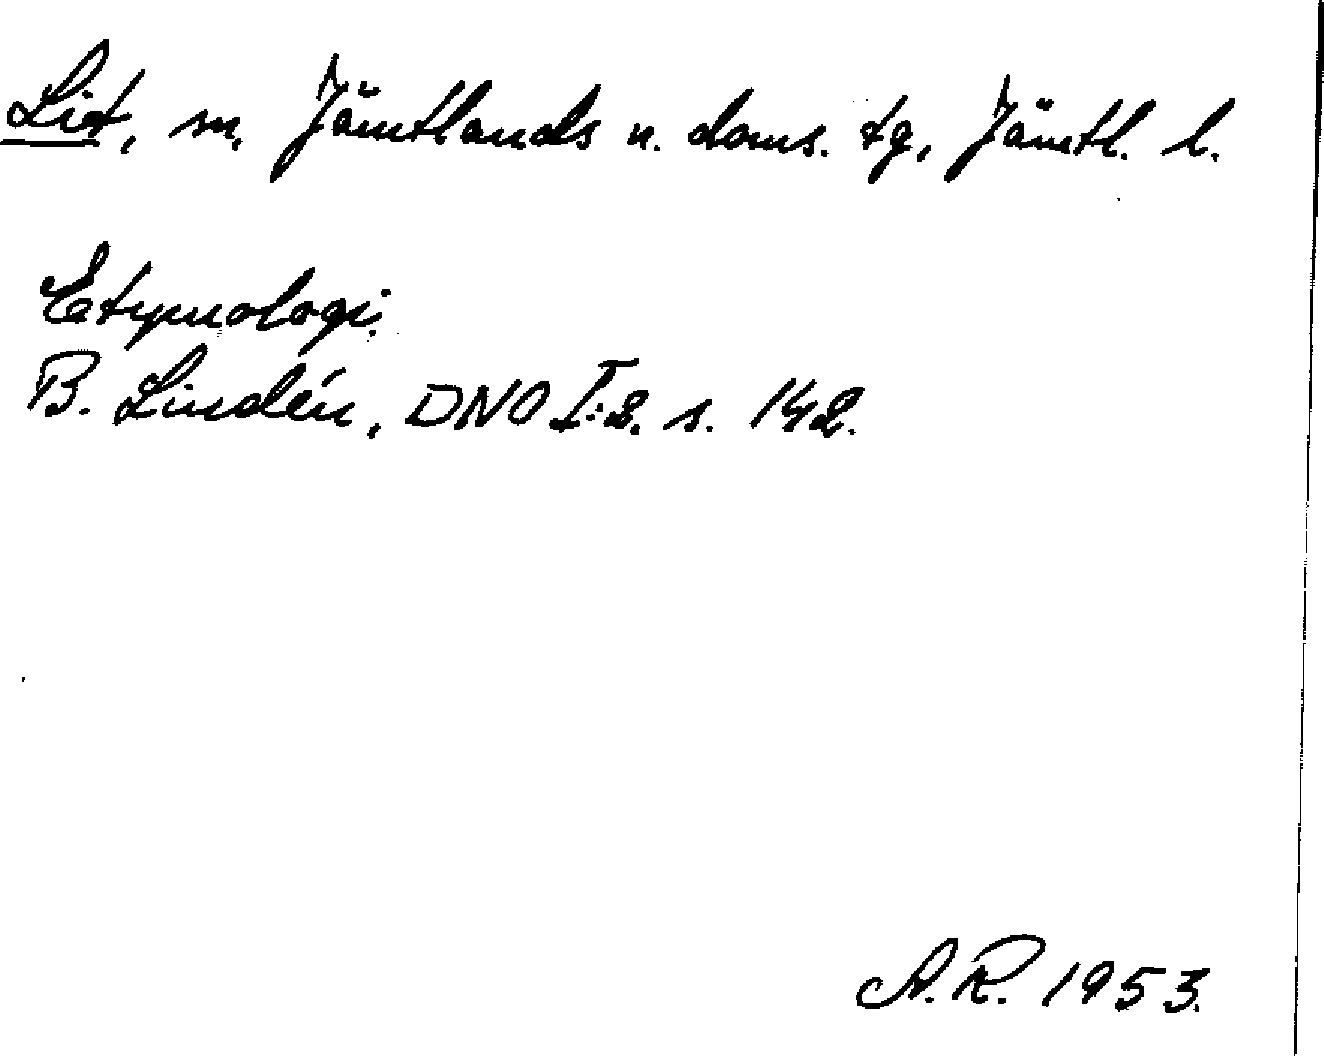 Lit, m. Jämtlands n. doms. tg, Jämtl. l.
Etymologi.
B. Lindén, DNO I:2. s. 142.
A.R. 1953.